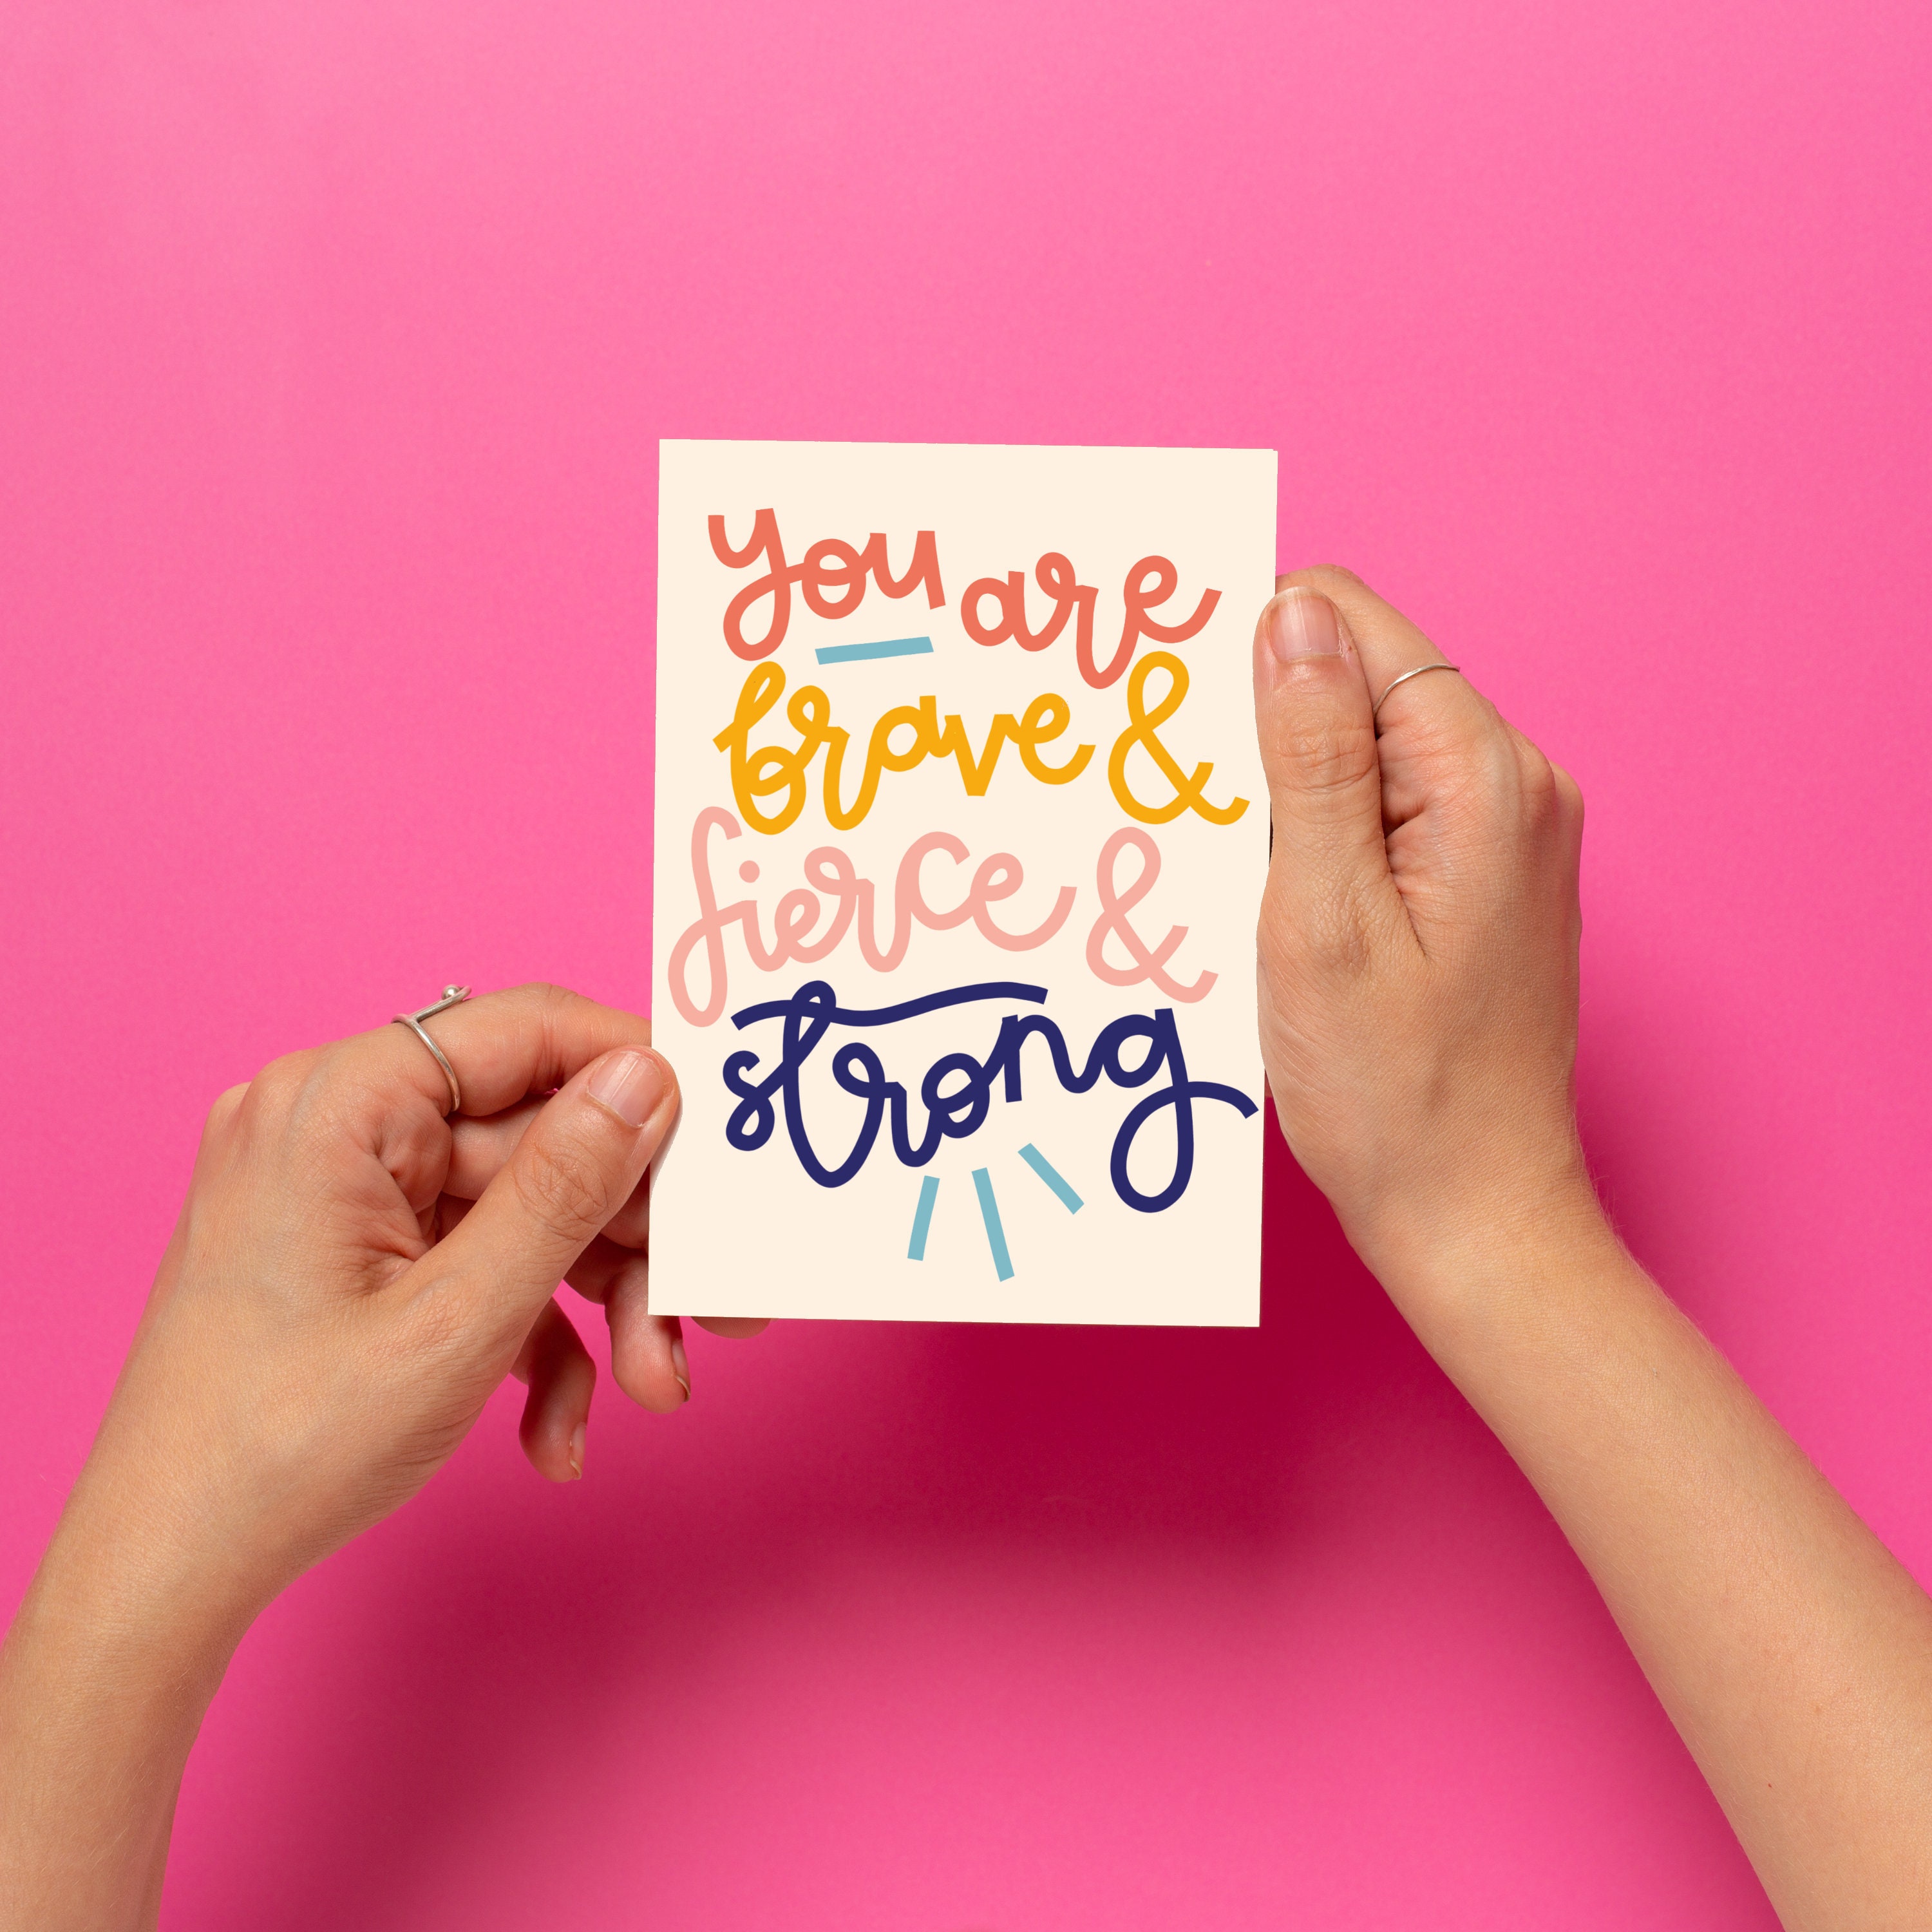 you are
brave &
fierce &
strong